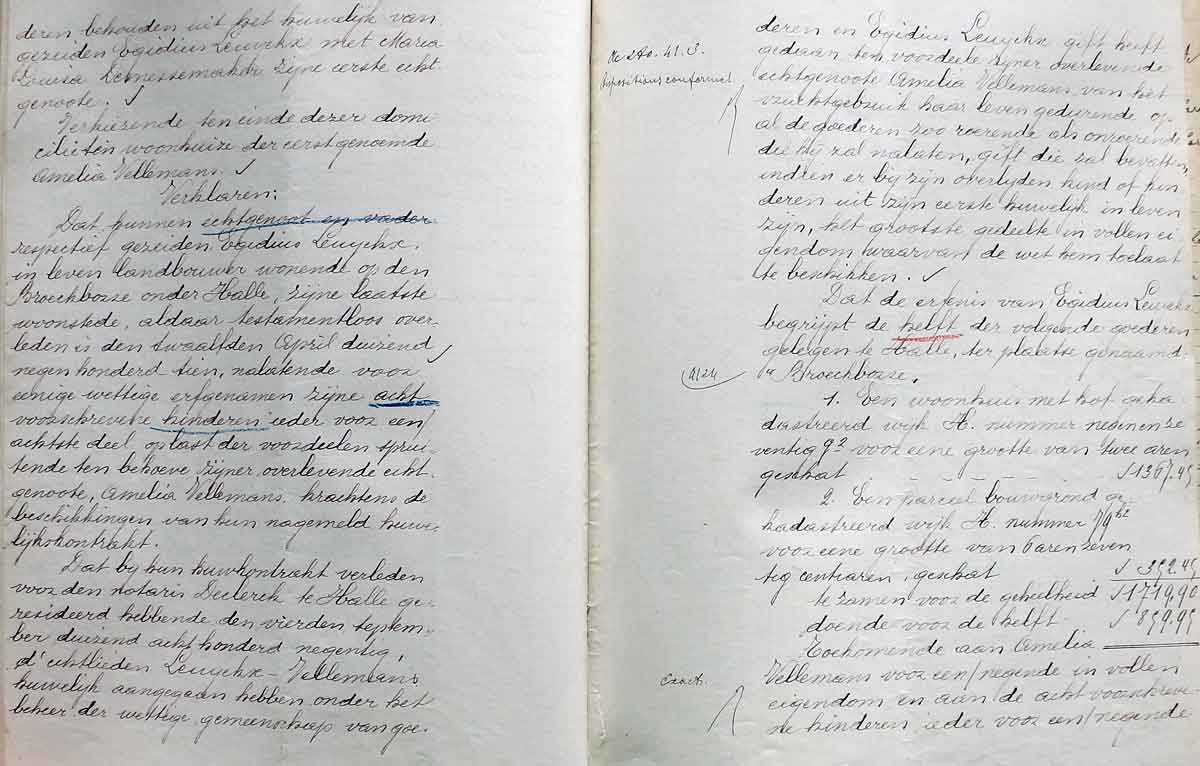 deren behouden uit het huwelijk van
gezeiden Egidius Leuyckx met Maria
Louisa Demessemaeker zijne eerste echt-
genoote.
Verkiezende ten einde dezer domi-
cilie ten woonhuize der eerstgenoemde
Amelia Vellemans.
Verklaren:
Dat hunnen echtgenoot en vader
respectief gezeiden Egidius Leuyckx,
in leven landbouwer wonende op den
Broeckbosse onder Halle, zijne laatste
woonstede, aldaar testamentloos over-
leden is den twaalfden April duizend
negen honderd tien, nalatende voor
eenige wettige erfgenamen zijne acht
voorschreven kinderen ieder voor een/
achtste deel op last der voordeelen sprui-
tende ten behoeve zijner overlevende echt-
genoote, Amelia Vellemans, krachtens de
beschikkingen van hun nagemeld huwe-
lijkskontrakt.
Dat bij hun huwkontrakt verleden
voor den notaris Declerck te Halle ge-
resideerd hebbende den vierden septem-
ber duizend acht honderd negentig,
d'echtlieden Leuyckx-Vellemans
huwelijk aangegaan hebben onder het
beheer der wettige gemeenschap van goe-
deren en Egidius Leuyckx gift heeft
gedaan ten voordeele zijner overlevende
echtgenoote Amelia Vellemans van het
vruchtgebruik haar leven gedurende op
al de goederen zoo roerende als onroerende
die hij zal nalaten, gift die zal bevatten,
indien er bij zijn overlijden kind of kin
deren uit zijn eerste huwelijk in leven
zijn, het grootste gedeelte in vollen ei-
gendom waarvan de wet hem toelaat
te beschikken.
Dat de erfenis van Egidius Leuyckx
begrijpt de helft der volgende goederen
gelegen te Halle, ter plaatse genaamd
"Broeckbosse.
1. Een woonhuis met hof geka-
dastreerd wijk H. nummer negenenze
ventig g2 voor eene grootte van twee aren
geschat
2. Een parceel bouwgrond ge-
kadastreerd wijk H. nummer 79
voor eene grootte van 6 aren zeven
tig centiaren, geschat
te zamen voor de geheelheid 1719.90
doende voor de helft 859.95
Toekomende aan Amelia
Vellemans voor een/negende in vollen
eigendom en aan de acht voorschreve-
ne kinderen ieder voor een/negende
Dispositions conforme
Exact.